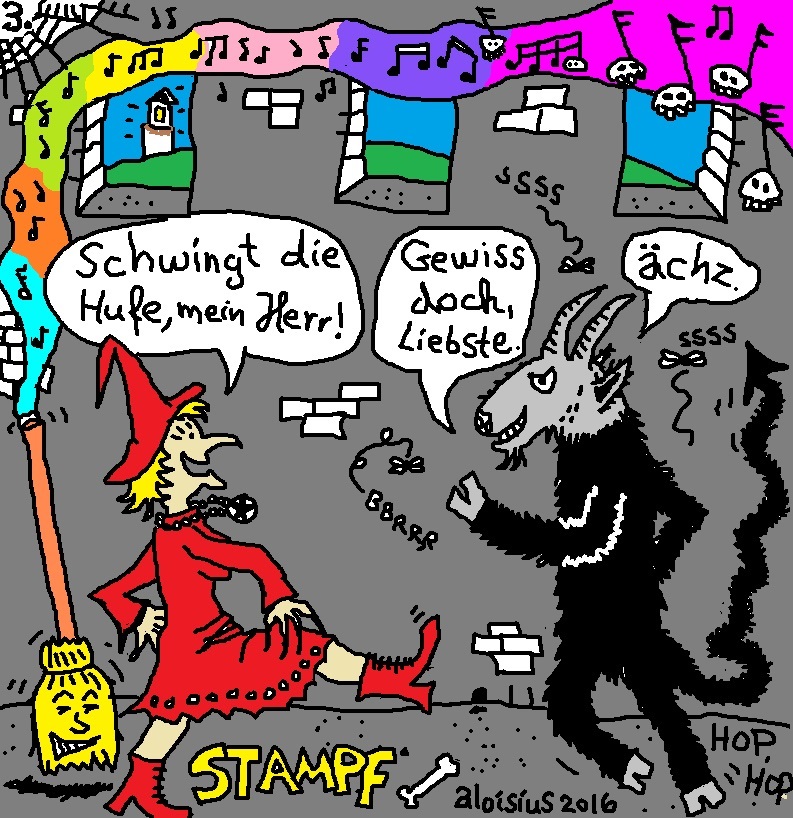 3.
SSSS
Schwingt die
Hufe, mein Herr!
Gewiss
doch,
Liebste.
ächz.
SSSS
BBRRR
STAMPF
HOP
HOP
aloisius 2016